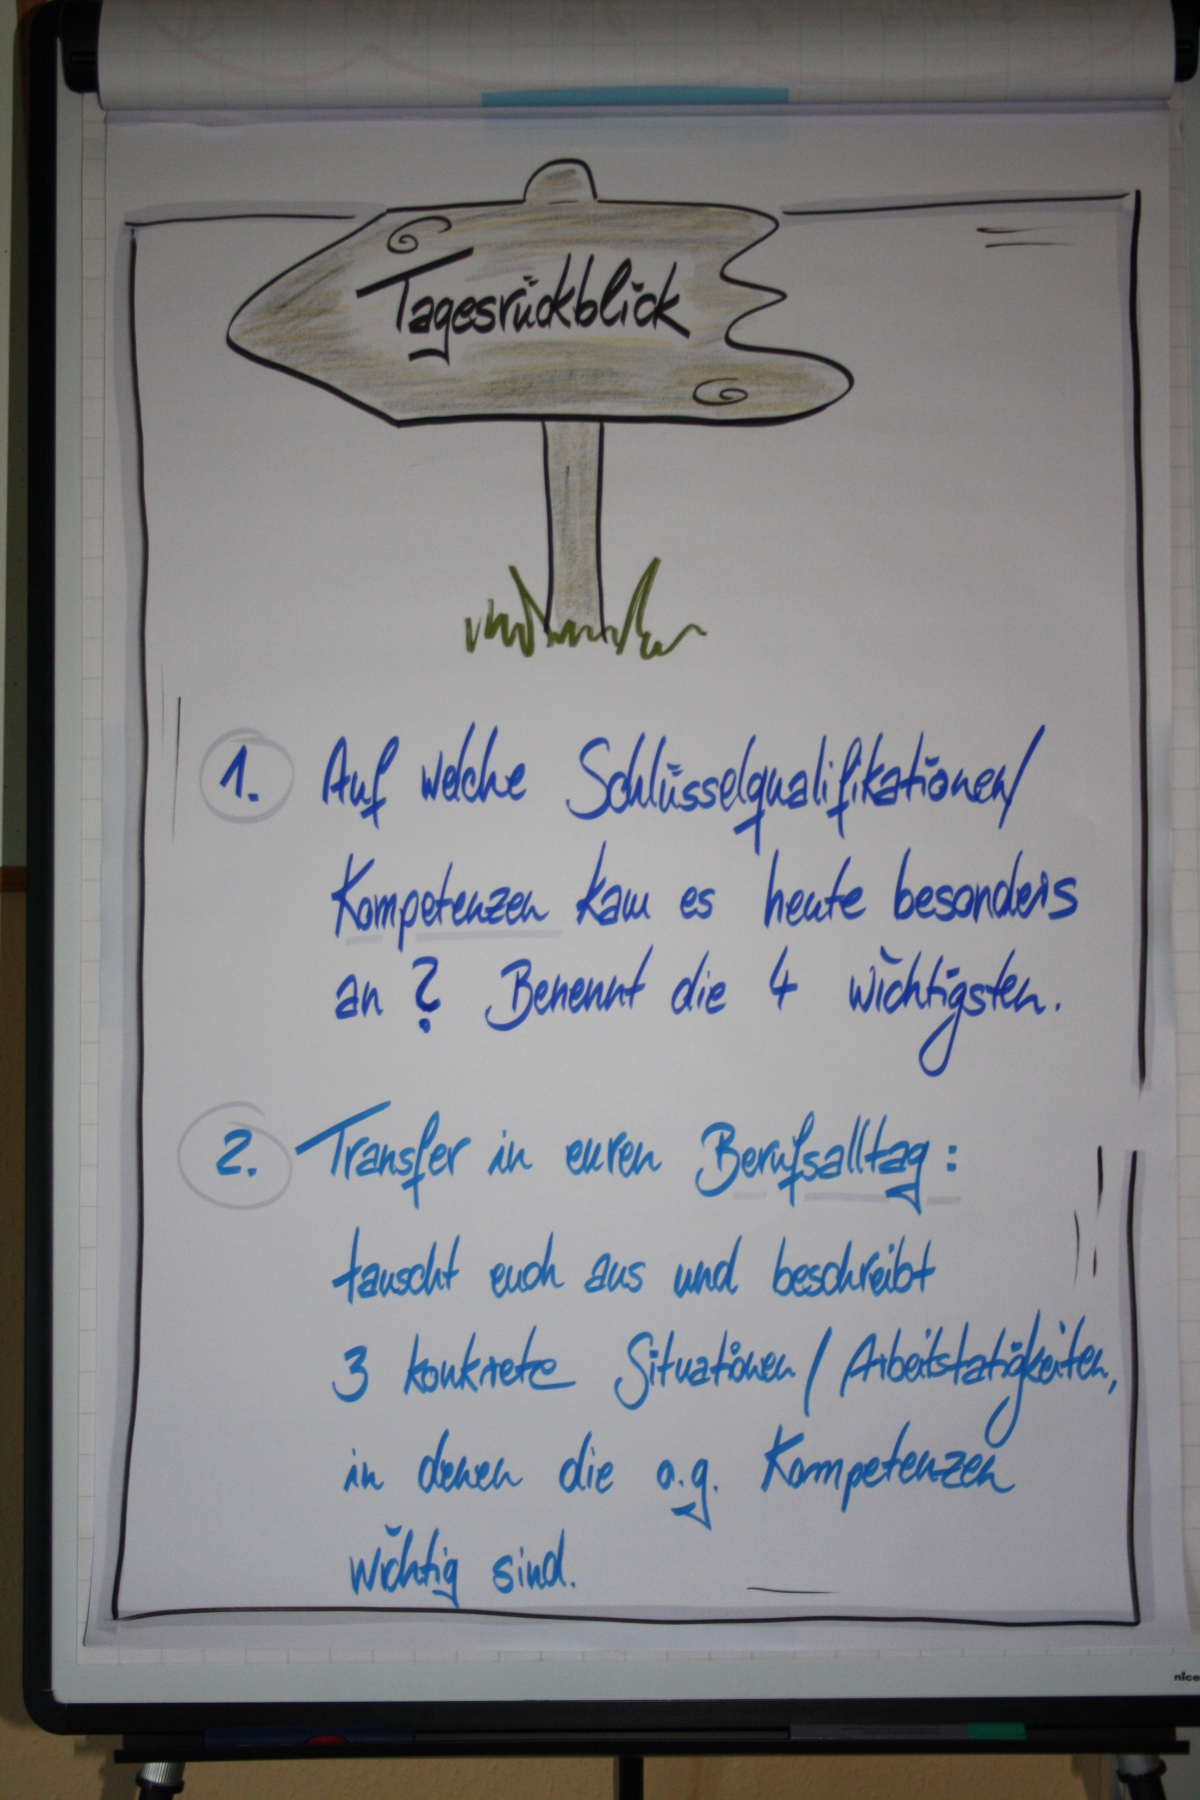 Tagesrückblick
1. Auf welche Schlüsselqualifikationen/
Kompetenzen kam es heute besonders
an? Benennt die 4 wichtigsten.
2. Transfer in euren Berufsalltag:
tauscht euch aus und beschreibt
3 konkrete Situationen / Arbeitstätigkeiten,
in denen die o.g. Kompetenzen
wichtig sind.